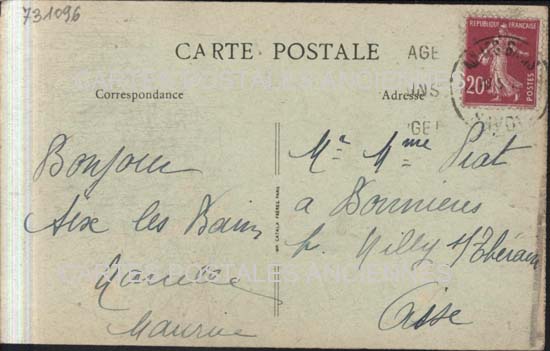 731096
CARTE POSTALE
Correspondance
Adresse
AGE
INS
GE
REPUBLIQUE FRANÇAISE
20c
POSTES
Bonjour
Aix les Bains
Maurice
IMP. CATALA FRÈRES PARIS
Mr Mme Piat
a Bonnières
p. Milly s/Thérain
Oise
CARTES POSTALES ANCIENNES
CARTES POSTALES ANCIENNES